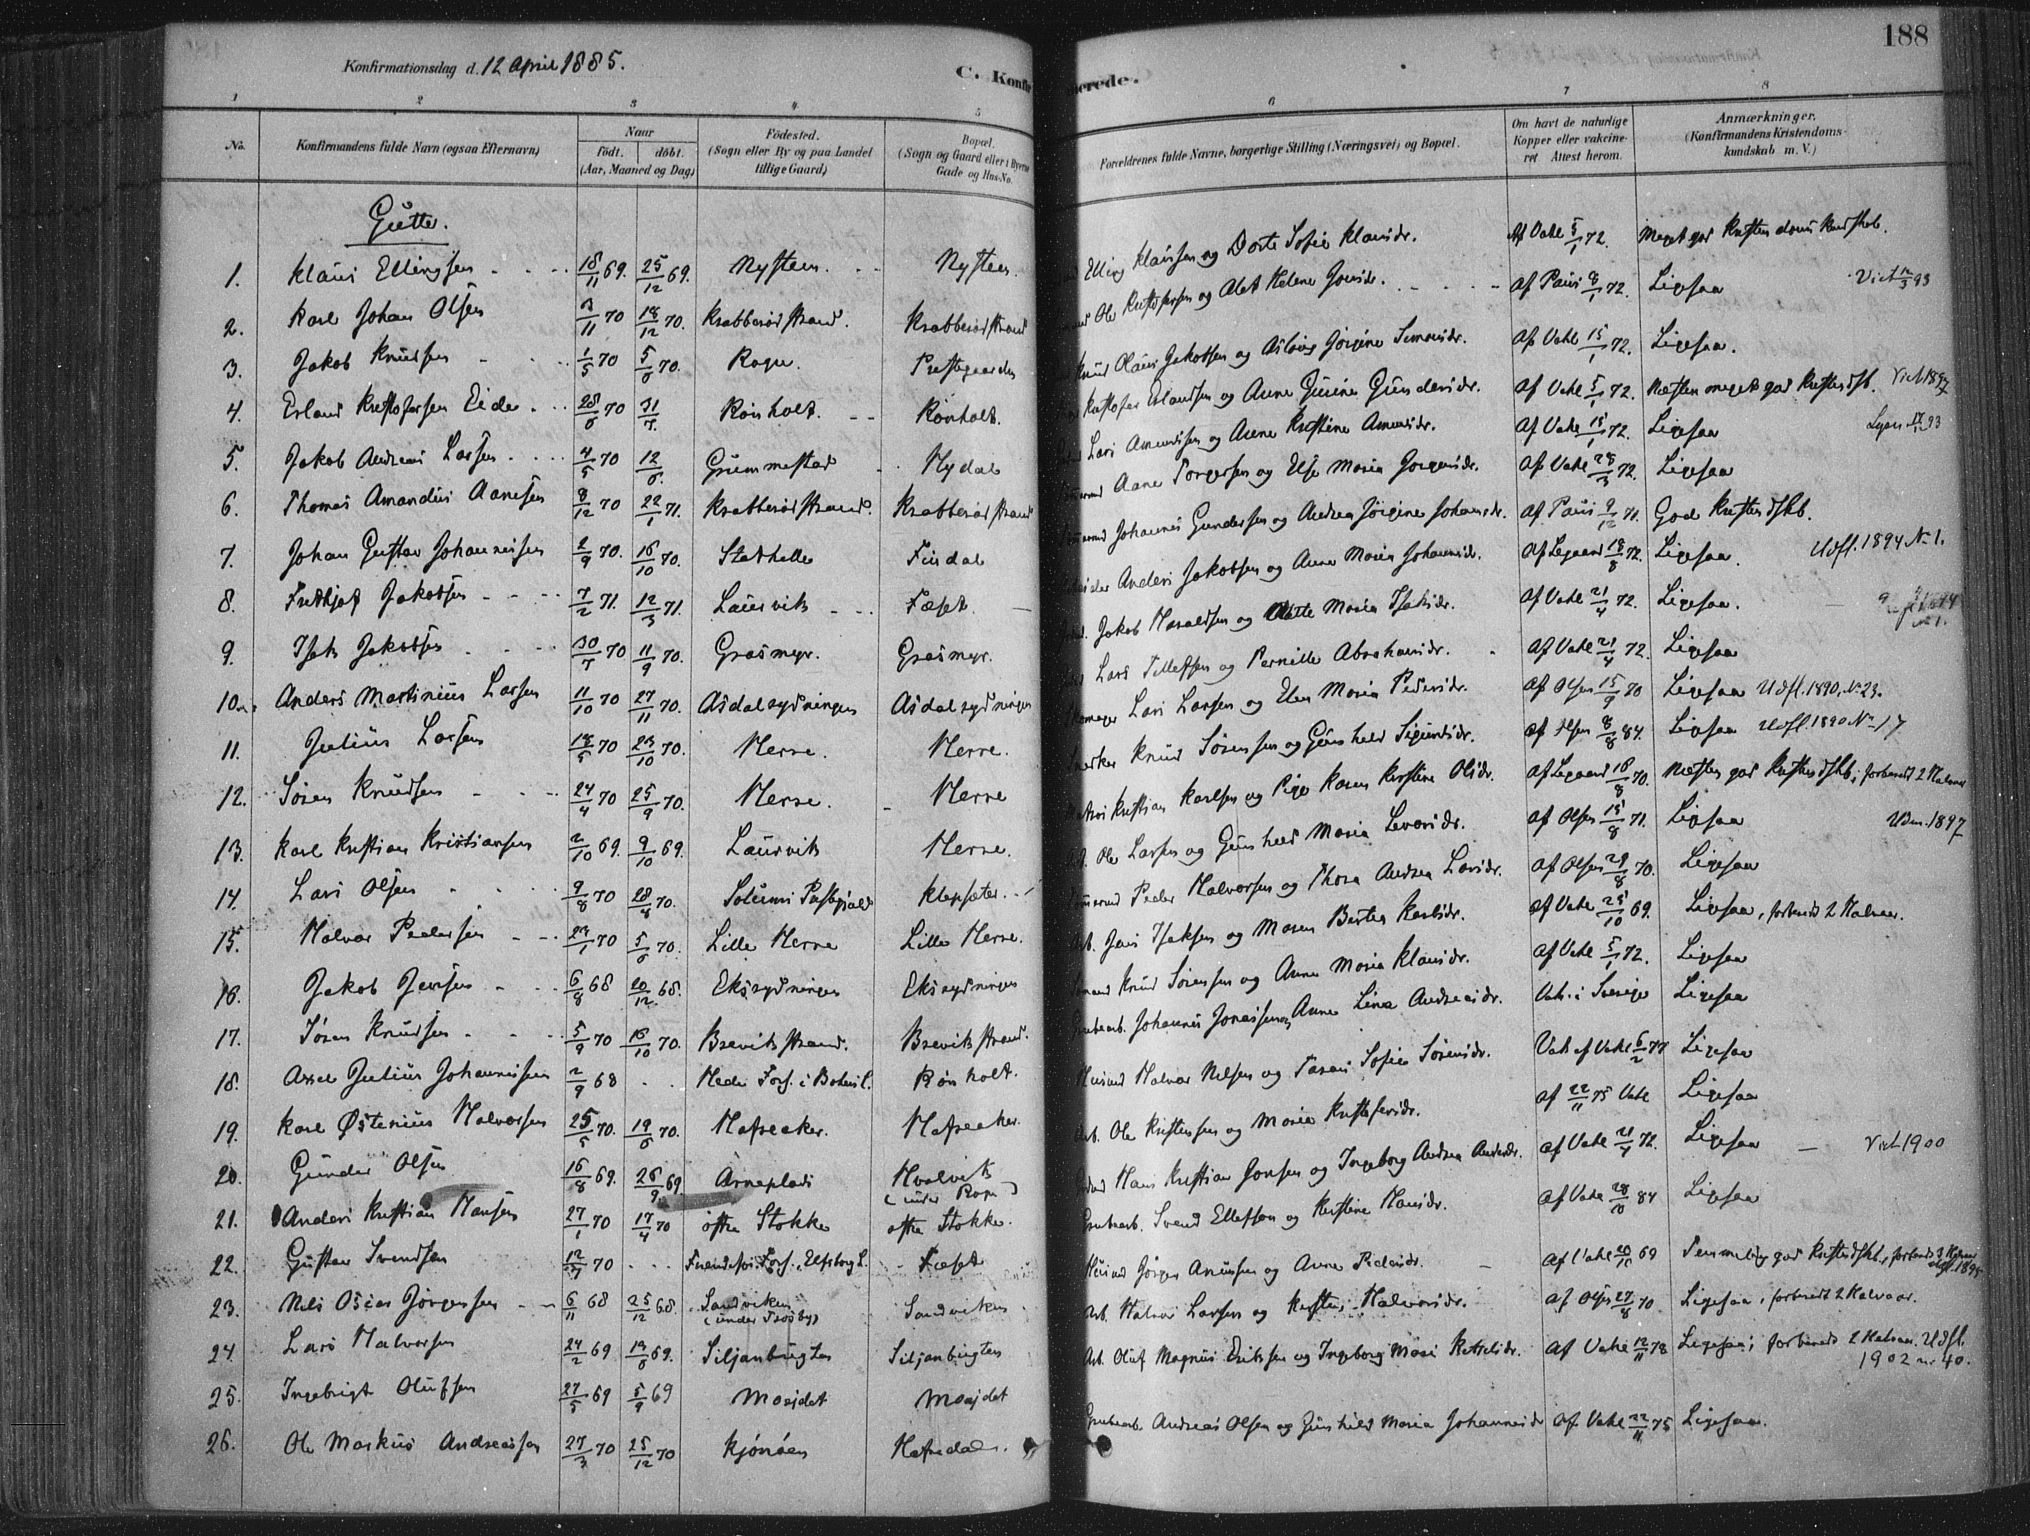 188
Konfirmationsdag d. 12 April 1885.
C. Konfir merede.
1 2 3 4 5 6 7 8
No. Konfirmandens fulde Navn (ogsaa Efternavn) Naar födt. döbt. (Aar, Maaned og Dag) Födested. (Sogn eller By og paa Landet tillige Gaard) Bopæl. (Sogn og Gaard eller i Byerne Gade og Hus-No. Forældrenes fulde Navne, borgerlige Stilling (Næringsvei) og Bopæl. Om havt de naturlige Kopper eller vaccineret Attest herom. Anmærkninger. (Konfirmandens Kristendomskundskab m. V.)
Gutter.
1. Klaus Ellingsen 18/11 69. 25/12 69. Nysteen. Nysteen. Elling Klausen og Dorte Sofie Klausdr. Af Vahl 5/1 72. Meget god Kristendoms Kundskab.
2. Karl Johan Olsen 3/11 70 18/12 70. Krabberødstrand. Krabberødstrand Ole Kristofersen og Alet Helene Jonsdr. af Paus 8/1 72. Ligesaa
3. Jakob Knudsen 1/5 70 5/6 70. Rogn. Prestegaarden Knud Olaus Jakobsen og Aslaug Jørgine Simonsdr. af Vahl 15/1 72. Ligesaa.
4. Erland Kristofersen Eide 28/6 70 31/7. Rønholt. Rønholt. Kristofer Erlandsen og Anne Gurine Gundersdr. af Vahl 5/1 72. Næsten meget god Kristendsk. Vict 1897
5. Jakob Andreas Larsen 4/5 70 12/6. Grummestad Nydal Lars Amundsen og Anne Kristine Amundsdr. af Vahl 15/1 72. Ligesaa
6. Thomas Amandus Aanesen 8/12 70 22/1 71. Krabberødstrand. Krabberødstrand Aane Torgersen og Else Maria Jørgensdr. af Vahl 28/3 72. Ligesaa
7. Johan Gustav Johannesen 2/9 70. 16/10 70. Stathelle Findal Johannes Gundersen og Andrea Jørgine Johansdr. af Paus 9/12 71. God Kristendskb.
8. Fritthjof Jakobsen 7/2 71. 12/3 71. Laurvik Fæset Anders Jakobsen og Anne Maria Johannesdr. af Legaard 18/8 72. Ligesaa. Udfl. 1894 No 1.
9. Isak Jakobsen 30/7 70 11/9 70. Grasmyr. Grasmyr. Jakob Haraldsen og Mette Maria Isaksdr. af Vahl 21/4 72. Ligesaa.
10. Anders Martinius Larsen 11/10 70 27/11 70. Aasdalsydningen Aasdalsydningen Lars Tellefsen og Pernille Abrahamsdr. af Vahl 21/4 72. Ligesaa
11. Julius Larsen 18/5 70 23/10 70. Herre. Herre. Lars Larsen og Elen Maria Pedersdr. af Olsen 15/9 70 Ligesaa Udfl. 1890, No 23.
12. Søren Knudsen 24/4 70 25/9 70. Herre. Herre Knud Sørensen og Gunhild Sigurdsdr. af Olsen 8/8 84. Ligesaa Udfl. 1890 No 17
13. Karl Kristian Kristiansen 2/10 69. 9/10 69. Laurvik Herre. Kristian Karlsen og Pige Karen Kirstine Olsdr. af Legaard 16/8 70. Næsten god Kristendskb; forberedt 2 Halvaar
14. Lars Olsen 9/8 70 28/8 70. Solums Prestegjæld Klepsæter. Ole Larsen og Gunhild Maria Levorsdr. af Olsen 15/8 71. Ligesaa Udm. 1897
15. Halvor Pedersen 23/1 70 5/6 70. Lille Herre Lille Herre. Peder Halvorsen og Thora Andrea Larsdr. af Olsen 29/8 70. Ligesaa
16. Jakob Jensen 6/8 68 20/12 68. Eksydningen Eksydningen Jens Isaksen og Maren Berta Karlsdr. af Vahl 25/10 69. Ligesaa, forberedt 2 Halvaar.
17. Søren Knudsen 5/9 70 16/10 70. Brevikstrand. Brevikstrand. Knud Sørensen og Anne Maria Klausdr. af Vahl 5/1 72. Ligesaa
18. Axel Julius Johannesen 2/9 68 Hede Fors. i Bohusl. Rønholt. Grubearb. Johannes Jonassen og Anne Lina Andreasdr. Vak. i Sverige Ligesaa
19. Karl Østenius Halvorsen 25/5 70. 19/6 70. Hafreaker. Hafreaker. Husmd Halvor Nielsen og Taran Sofie Sørensdr. Vak af Vahl 6/2 77 Ligesaa
20. Gunder Olsen 16/8 69. 26/9 69 Arneplads Hvalvik (under Rogn) Arb. Ole Kristensen og Maria Kristofersdr. af 22/11 75 Vahl Ligesaa
21. Anders Kristian Hansen 27/1 70 17/4 70 østre Stokke østre Stokke. Hans Kristian Jonsen og Ingeborg Andrea Andersdr. af Vahl 21/4 72. Ligesaa Vict 1900
22. Gustav Svendsen 12/7 70 Elfsborg L. Fæset Grubearb. Svend Ellefsen og Kirstine Hansdr. af Vahl 28/10 84 Ligesaa
23. Nils Osias Jørgensen 6/11 68 25/12 68. Sandviken (under Trosby) Sandviken Husmd Jørgen Arnesen og Anne Pedersdr. af Vahl 20/10 69 Temmelig god Kristendskb., forberedt 3 Halvaar
24. Lars Halvorsen 24/2 69 19/6 69. Siljanbugten Siljanbugten Arb. Halvor Larsen og Kirsten Halvorsdr. af Olsen 27/8 70. Ligesaa, forberedt 2 Halvaar.
25. Ingebrigt Olufsen 27/5 69 5/9 69 Mosjdet Mosjdet Arb. Oluf Magnus Eriksen og Ingeborg Marie Ketelsdr. af Vahl 12/11 78 Ligesaa; forberedt 2 Halvaar. Udfl. 1902 nr 40.
26. Ole Markus Andreassen 27/3 70 25/12 70 Kjønøen Hafredal. Grubearb. Andreas Olsen og Gunhild Maria Johannesdr af Vahl 22/11 75 Ligesaa.